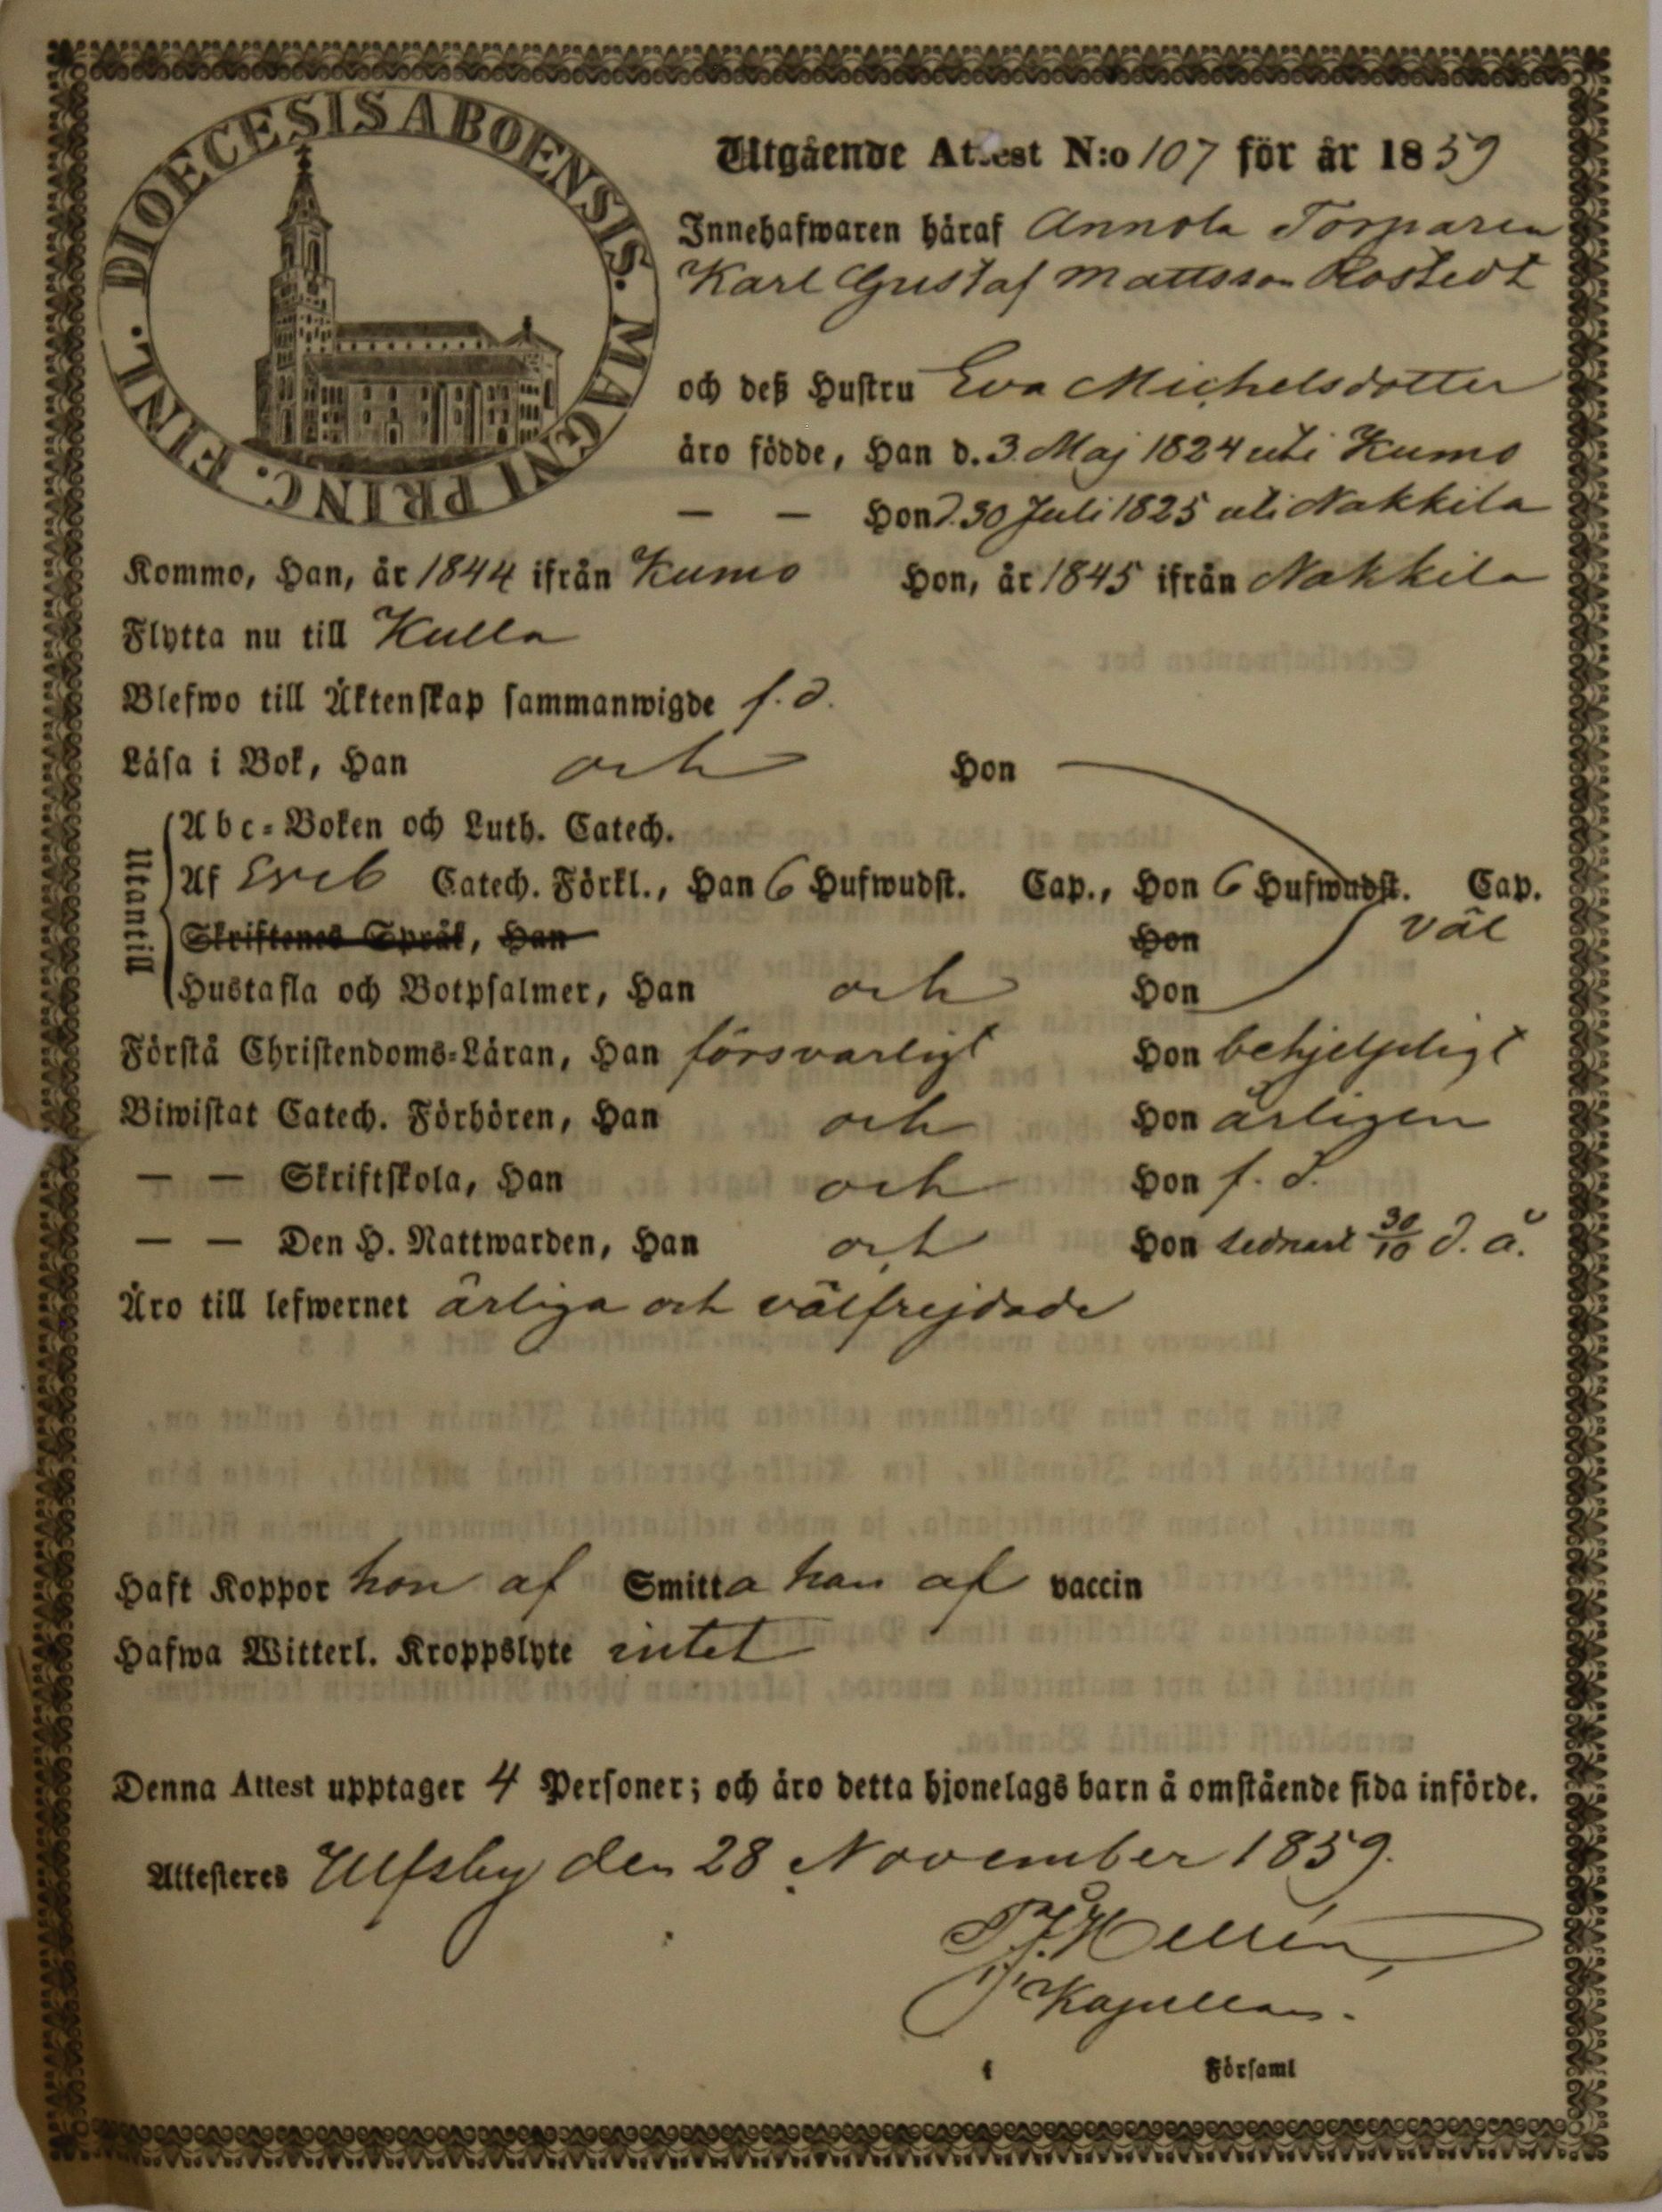 DIOECESIS ABOENSIS. MAGNI PRINC. FINL.
Utgående Attest N:o 107 för år 1859
Innehafwaren häraf Annola Torparen
Karl Gustaf Mattsson Rostedt
och deß Hustru Eva Michelsdotter
äro födde, Han d. 3. Maj 1824 uti Kumo
— — Hon d. 30 Juli 1825 uti Nakkila
Kommo, Han, år 1844 ifrån Kumo Hon, år 1845 ifrån Nakkila
Flytta nu till Kulla
Blefwo till Äktenskap sammanwigde f. d.
Läsa i Bok, Han och Hon
Utantill
Abc-Boken och Luth. Catech.
Af Sveb Catech. Förkl., Han 6 Hufwudst. Cap., Hon 6 Hufwudst. Cap.
Skriftenes Språk, Han Hon väl
Hustafla och Botpsalmer, Han och Hon
Förstå Christendoms-Läran, Han försvarligt Hon behjelpligt
Biwistat Catech. Förhören, Han och Hon årligen
— — Skriftskola, Han och Hon f. d.
— — Den H. Nattwarden, Han och Hon sednast 30/10 d. å.
Äro till lefwernet ärliga och välfrejdade
Haft Koppor hon af Smitta han af vaccin
Hafwa Witterl. Kroppslyte intet
Denna Attest upptager 4 Personer; och äro detta hjonelags barn å omstående sida införde.
Attesteres Ulfsby den 28 November 1859.
Hellén
Kapellan.
i Församl